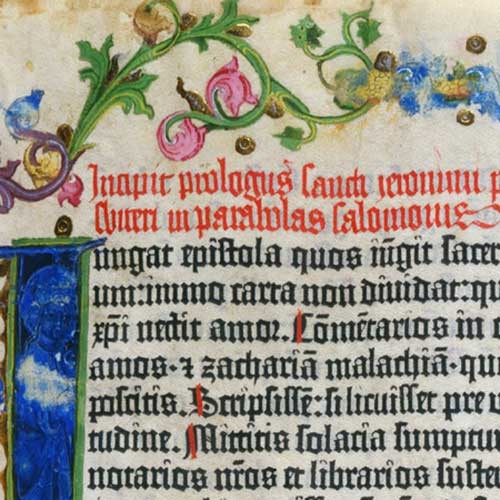 Incipit prologus sancti ieronimi p
sbiteri in parabolas salomonis
Iungat epistola quos iūgit sacer
um:immo carta non dividat:qu
xpi nectit amor. Cōmētarios in
amos·⁊ zachariā malachiā·qui
poscitis. Scripsisse:si licuisset pre v
tudine. Mittitis solacia sumptuu
notarios nr̄os et librarios suste